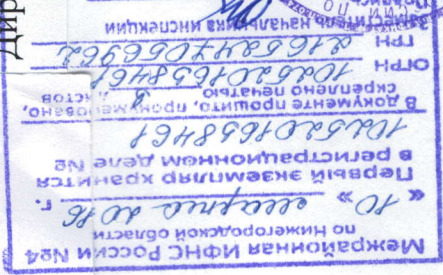 Межрайонная ИФНС России №4
по Нижегородской области
« 10 » марта 2016 г.
Первый экземпляр хранится
в регистрационном деле №
1025201658461
В документе прошито, пронумеровано,
скреплено печатью листов
ОГРН 1025201658461
ГРН 2165247056962
Заместитель начальника инспекции
Дир